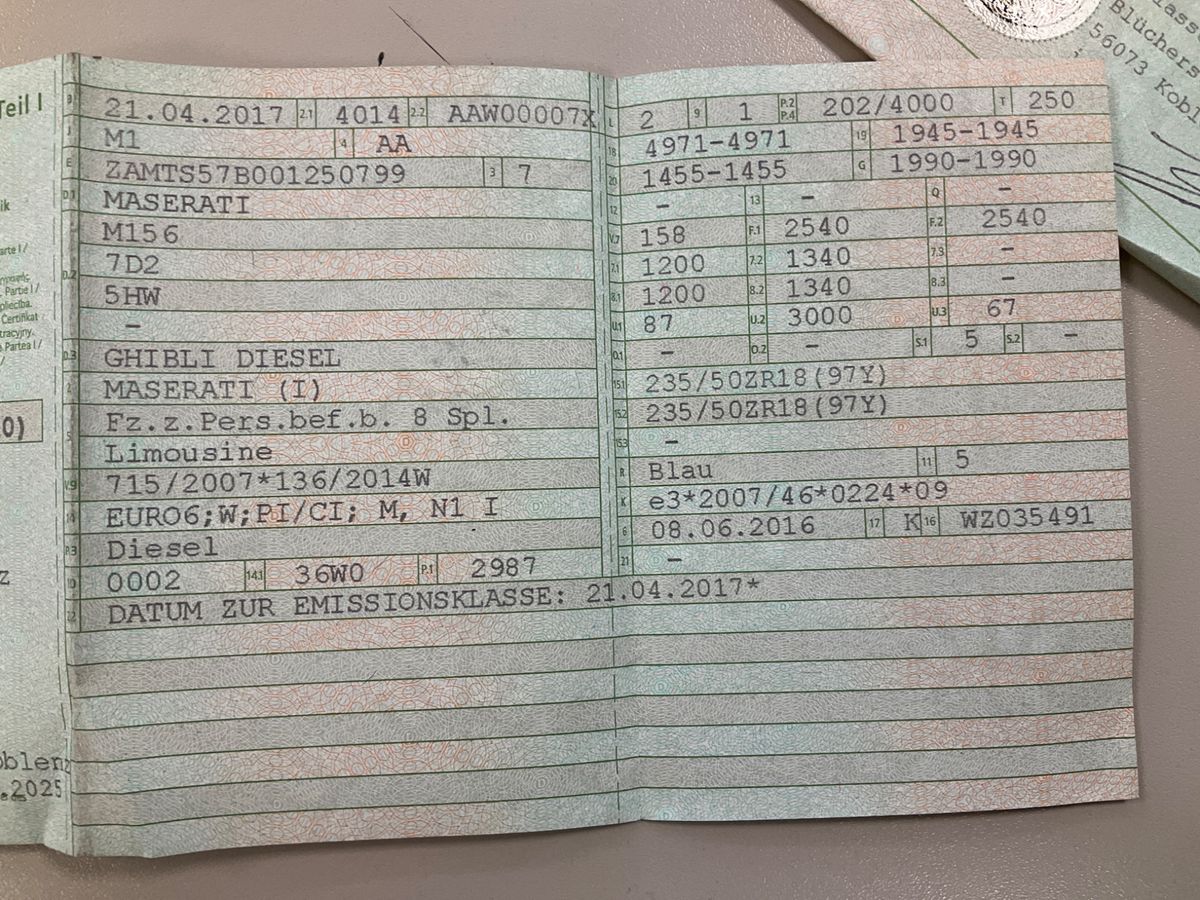 Teil I
B 21.04.2017 2.1 4014 2.2 AAW00007X
J M1 4 AA
E ZAMTS57B001250799 3 7
D.1 MASERATI
M156
D.2 7D2
5HW
–
D.3 GHIBLI DIESEL
2 MASERATI (I)
Fz.z.Pers.bef.b. 8 Spl.
5 Limousine
V.9 715/2007*136/2014W
14 EURO6;W;PI/CI; M, N1 I
P.3 Diesel
10 0002 14.1 36W0 P.1 2987
22 DATUM ZUR EMISSIONSKLASSE: 21.04.2017*
L 2 9 1 P.2 P.4 202/4000 T 250
18 4971–4971 19 1945–1945
20 1455–1455 G 1990–1990
12 – 13 – Q –
V.7 158 F.1 2540 F.2 2540
7.1 1200 7.2 1340 7.3 –
8.1 1200 8.2 1340 8.3 –
U.1 87 U.2 3000 U.3 67
O.1 – O.2 – S.1 5 S.2 –
15.1 235/50ZR18(97Y)
15.2 235/50ZR18(97Y)
15.3 –
R Blau 11 5
K e3*2007/46*0224*09
6 08.06.2016 17 K 16 WZ035491
21 –
ik
arte I /
Partie I /
Certifikat
Partea I /
0)
z
oblenz
.2025
Blüchers
56073 Kobl